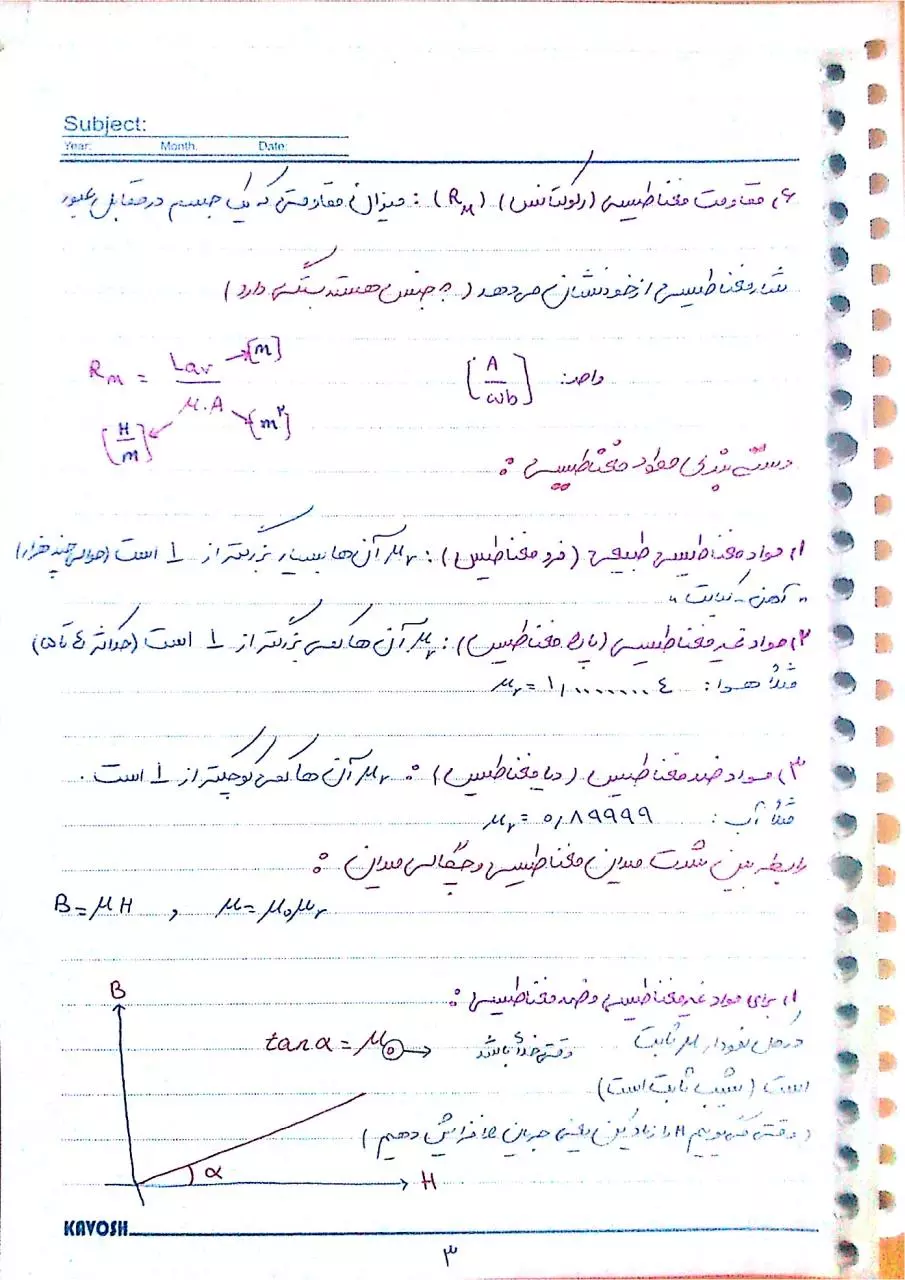 Subject:
Year: Month: Date:
۶) مقاومت مغناطیسی (رلوکتانس) (Rm): میزان مقاومتی که یک جسم در مقابل عبور
شار مغناطیسی از خود نشان می دهد (به جنس هسته بستگی دارد)
Rm = Lav → [m] / μ.A → [m²] [H/m] واحد: [A/wb]
دسته بندی مواد مغناطیسی:
۱) مواد مغناطیسی طبیعی (فرو مغناطیس): μr آن ها بسیار بزرگتر از 1 است (حوالی چند هزار)
"آهن - کبالت"
۲) مواد غیر مغناطیسی (پارا مغناطیس): μr آن ها کمی بزرگتر از 1 است (حداکثر ٤ تا ۵)
مثلاً هوا: μr = ۱٫۰۰۰۰۰۰۰۰٤
۳) مواد ضد مغناطیس (دیا مغناطیس): μr آن ها کمی کوچکتر از 1 است.
مثلاً آب: μr = ۰٫۸۹۹۹۹
رابطه بین شدت میدان مغناطیسی و چگالی میدان:
B = μH , μ = μ₀μr
۱) برای مواد غیر مغناطیسی و ضد مغناطیسی:
در کل نمودار μ ثابت
است (شیب ثابت است)
(وقتی می گوییم H را زیاد کن یعنی جریان را افزایش دهیم)
B
tan α = μ₀ → وقتی خلأ باشد
α
H
KAVOSH
۳